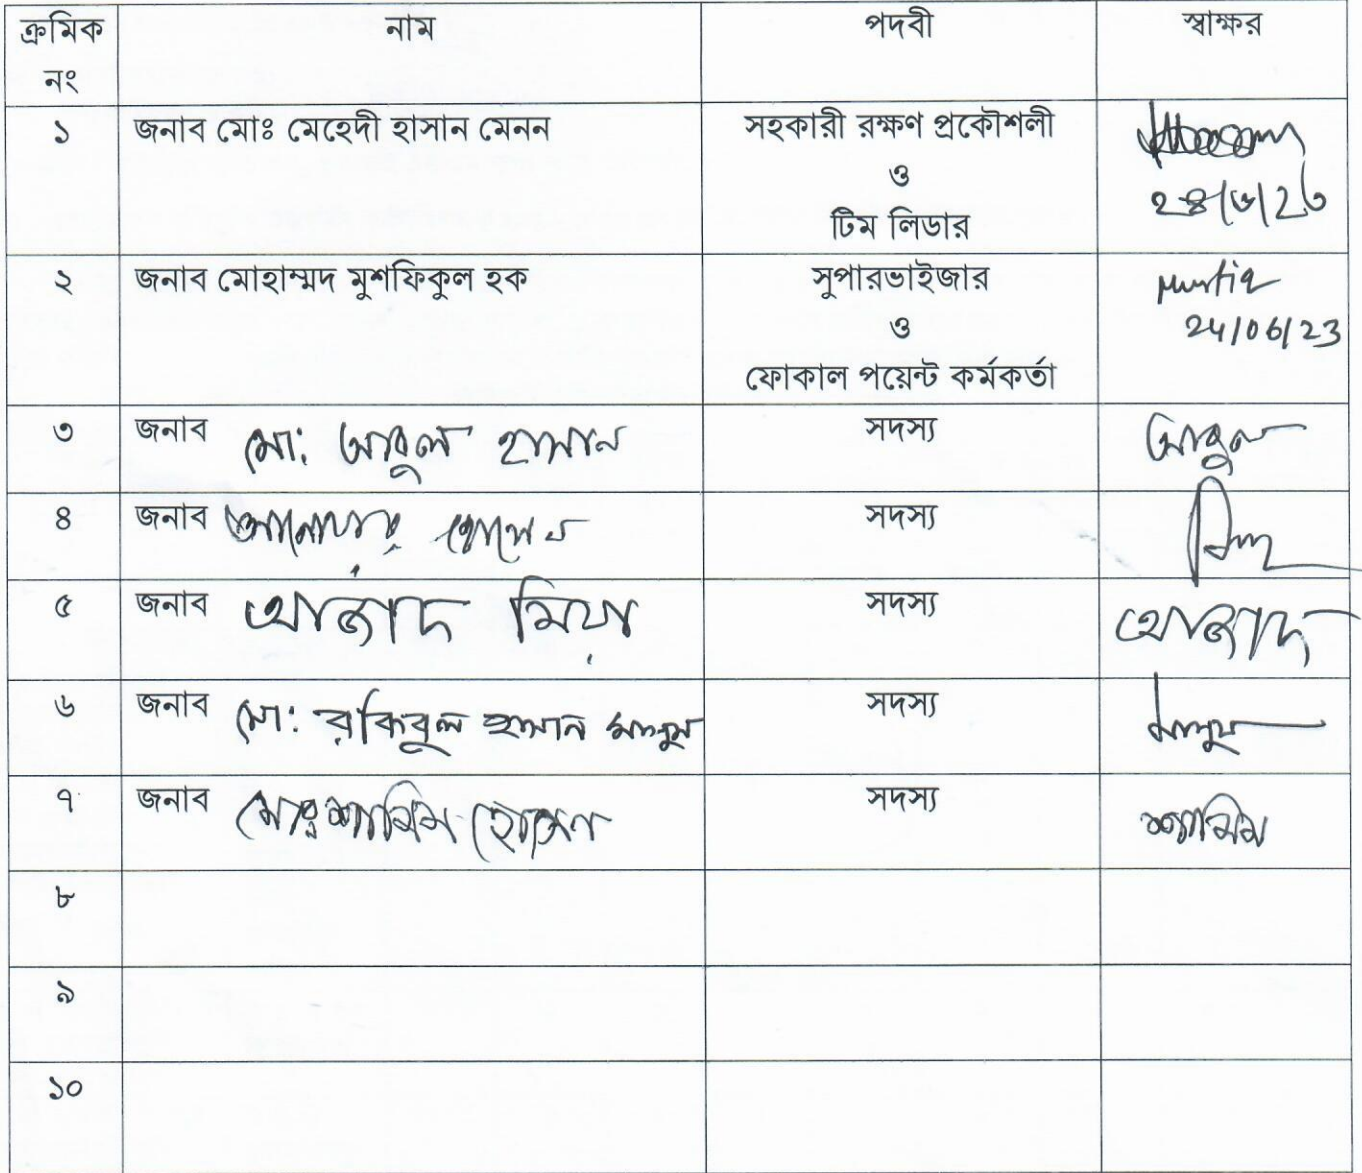 ক্রমিক নং নাম পদবী স্বাক্ষর
১ জনাব মোঃ মেহেদী হাসান মেনন সহকারী রক্ষণ প্রকৌশলী
ও
টিম লিডার
২ জনাব মোহাম্মদ মুশফিকুল হক সুপারভাইজার
ও 24/06/23
ফোকাল পয়েন্ট কর্মকর্তা
৩ জনাব মো: আবুল হাসান সদস্য আবুল
৪ জনাব আনোয়ার হোসেন সদস্য
৫ জনাব আজাদ মিয়া সদস্য আজাদ
৬ জনাব মো: রকিবুল হাসান মাসুম সদস্য মাসুম
৭ জনাব মোঃ শামিম হোসেন সদস্য শামিম
৮
৯
১০